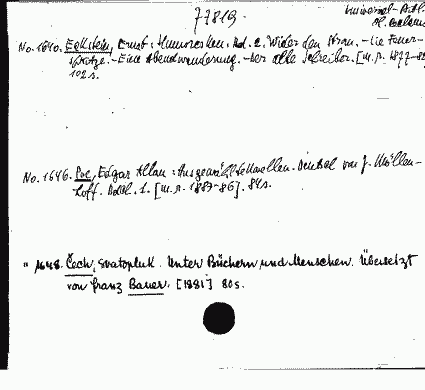 77819.
Universal-Bibl.
No. 1640. Eckstein, Ernst: Humoresken. Bd. 2. Wider den Strom. - Die Feuer-
spritze. - Eine Abendwanderung. - Der alte Schreiber. [m.p. 1877-
102 s.
No. 1646. Poe, Edgar Allan: Ausgewählte Novellen. Deutsch von J. Möllen-
hoff. Bdch. 1. [m.p. 1883-86]. 84 s.
" 1648. Čech, Svatopluk. Unter Büchern und Menschen. Übersetzt
von Franz Bauer. [1881] 80 s.